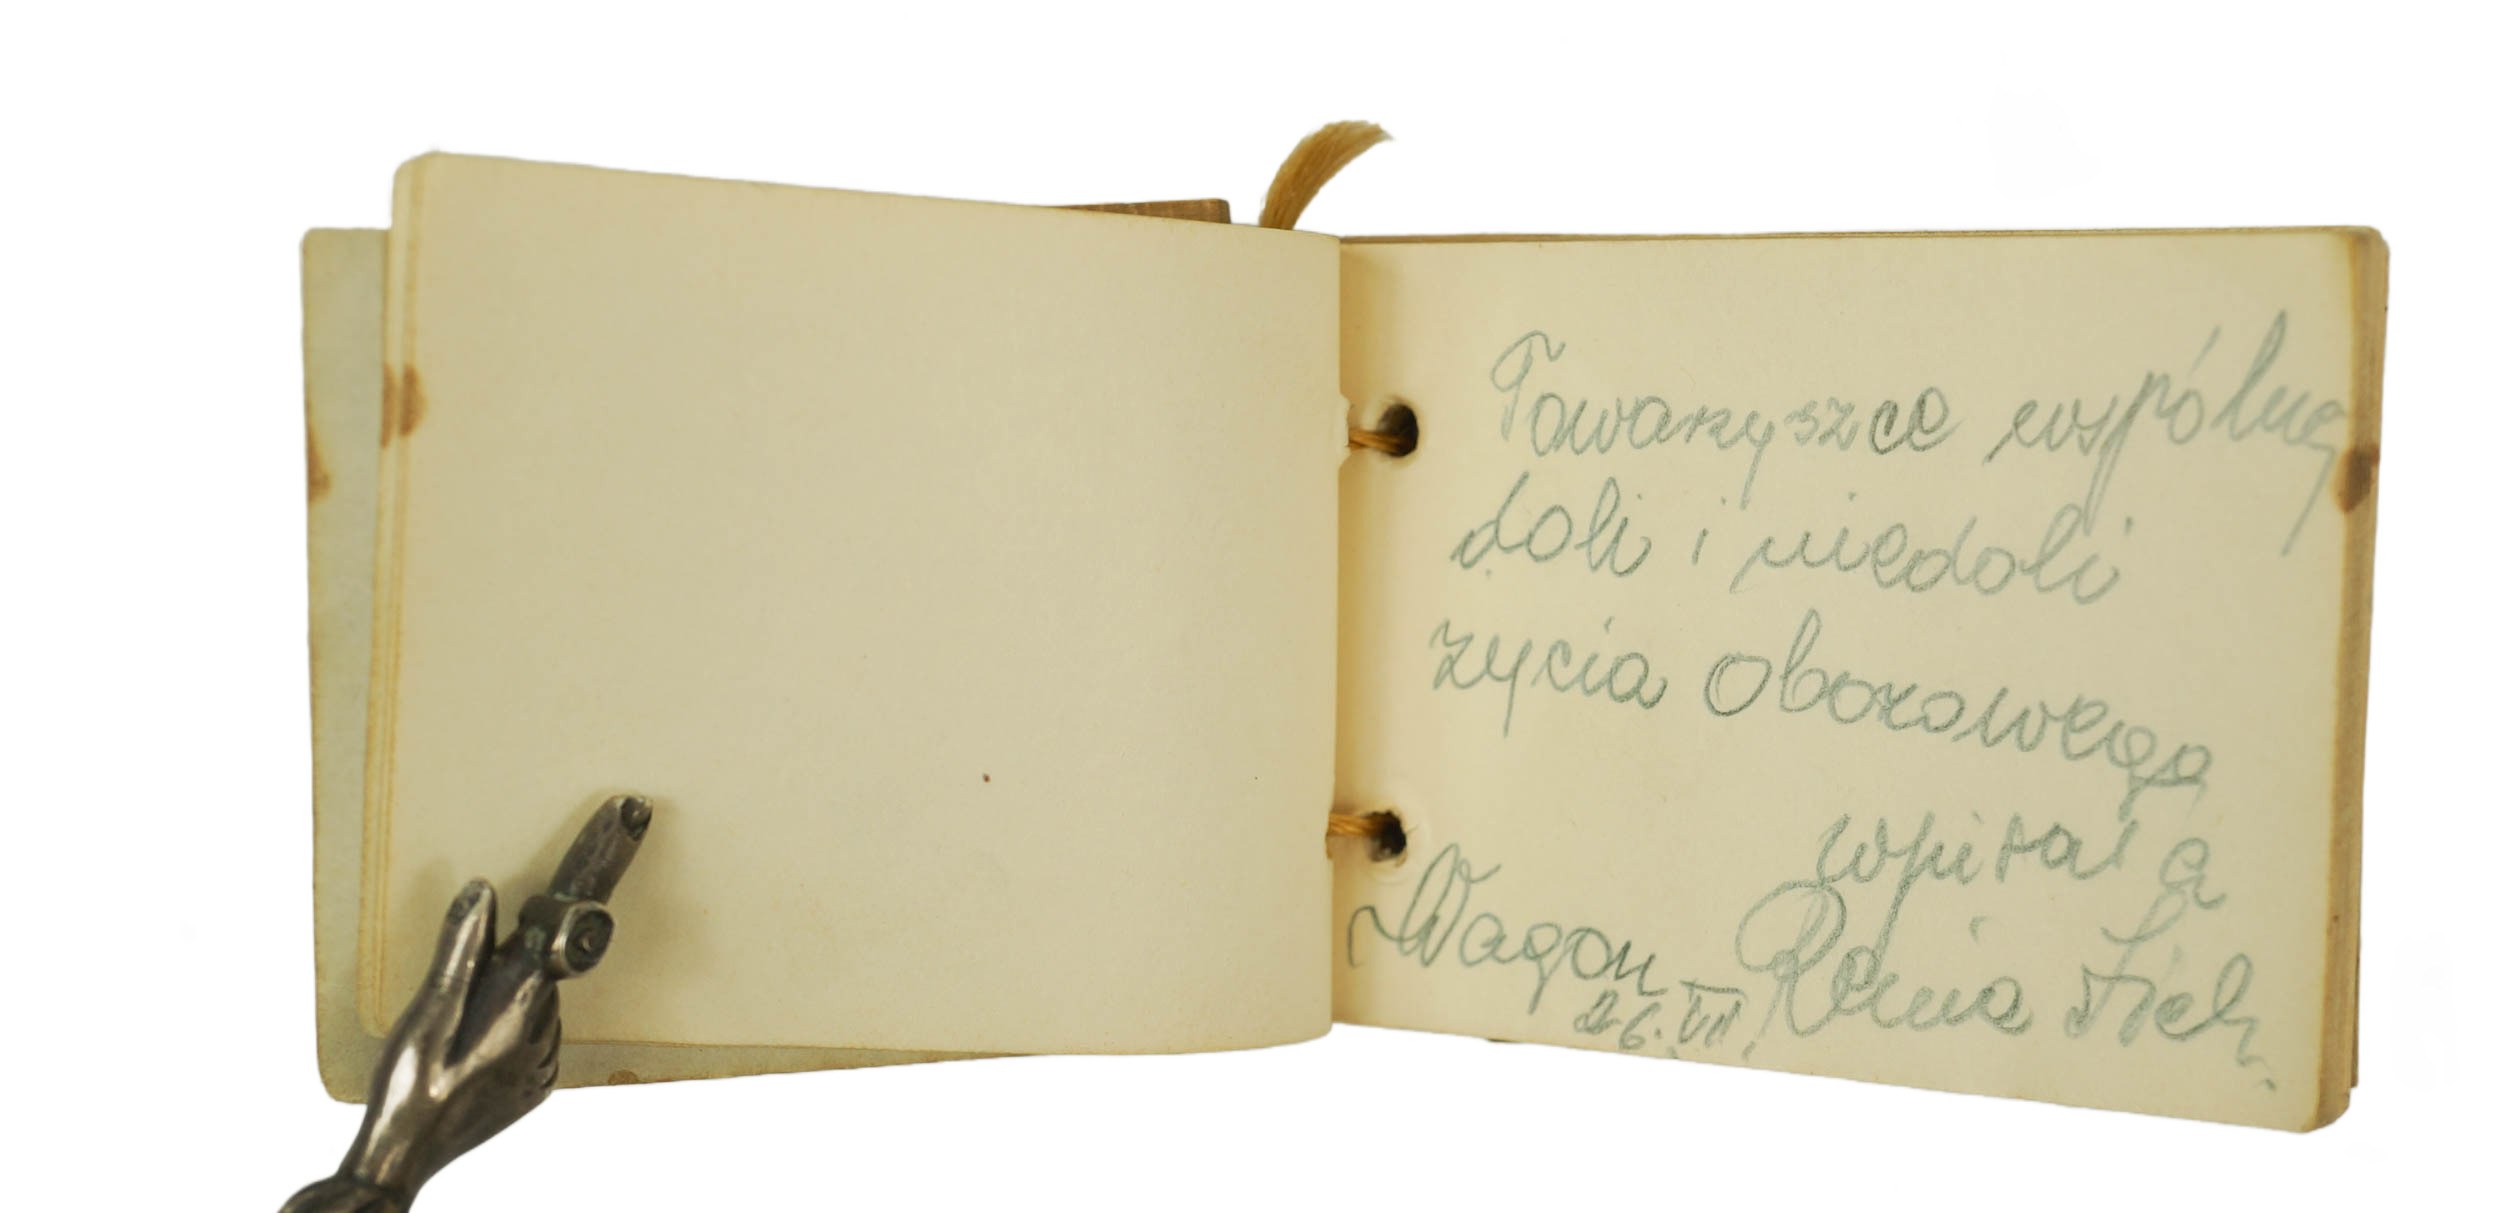 Towarzyszce wspólnej
doli i niedoli
życia obozowego
wpisała
Wagon Renia
26.VII.